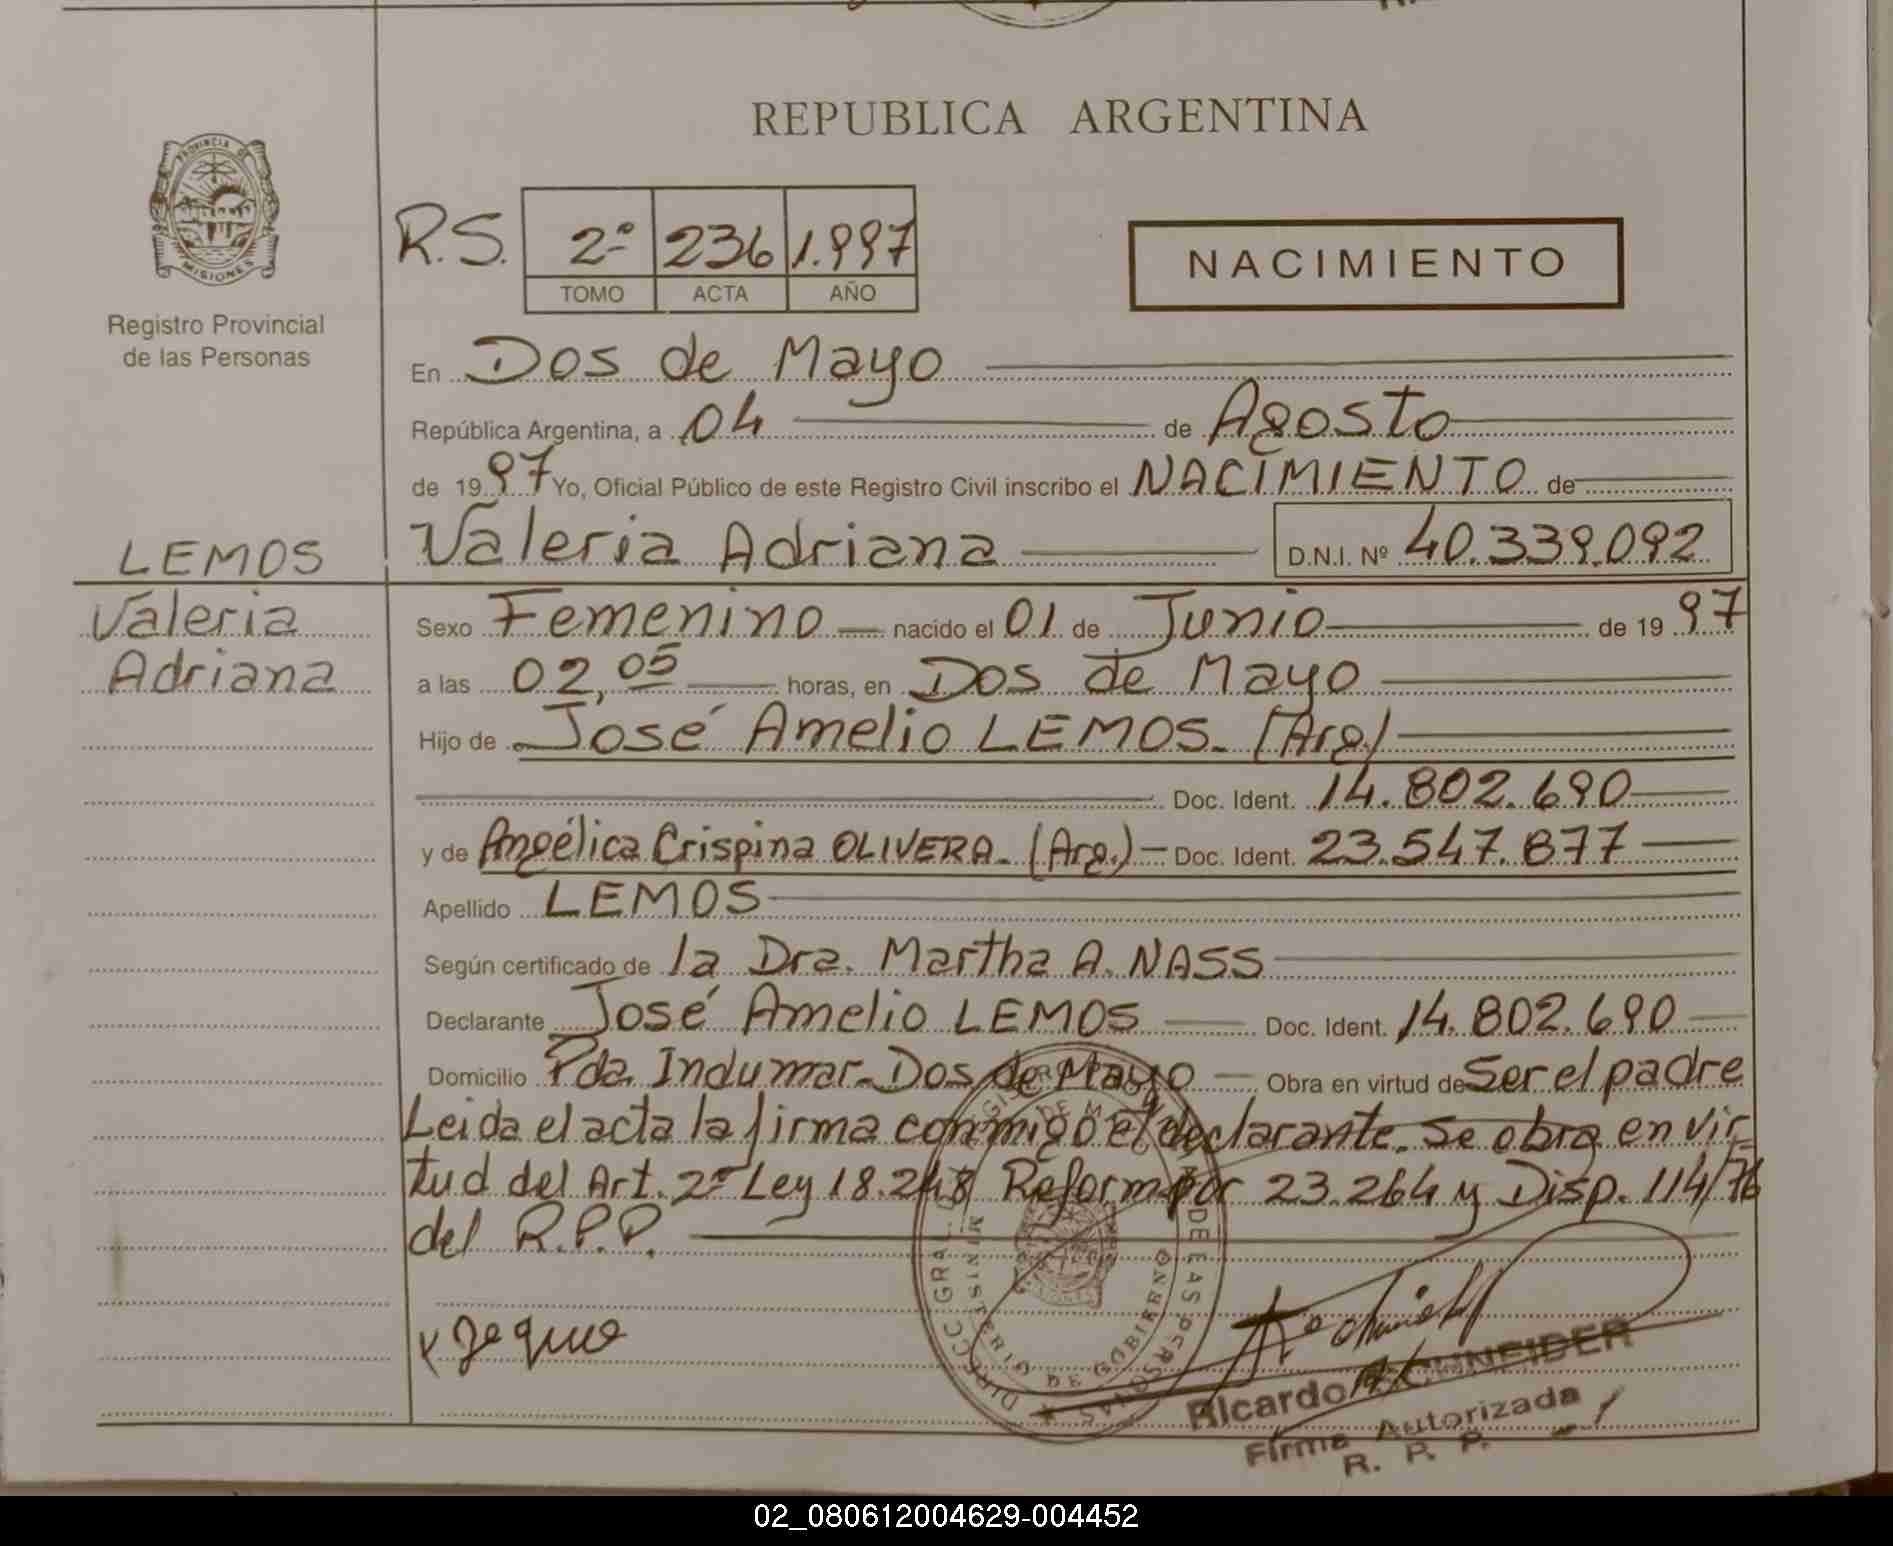 REPUBLICA ARGENTINA
PROVINCIA DE
MISIONES
Registro Provincial
de las Personas
R.S. 2º 236 1.997
TOMO ACTA AÑO
NACIMIENTO
En Dos de Mayo
República Argentina, a 04 de Agosto
de 1997 Yo, Oficial Público de este Registro Civil inscribo el NACIMIENTO de
LEMOS Valeria Adriana D.N.I. Nº 40.339.092
Valeria Sexo Femenino nacido el 01 de Junio de 1997
Adriana a las 02,05 horas, en Dos de Mayo
Hijo de José Amelio LEMOS. (Arg.)
Doc. Ident. 14.802.690
y de Angélica Crispina OLIVERA. (Arg.) Doc. Ident. 23.547.877
Apellido LEMOS
Según certificado de la Dra. Martha A. NASS
Declarante José Amelio LEMOS Doc. Ident. 14.802.690
Domicilio Pda. Indumar. Dos de Mayo Obra en virtud de Ser el padre
Leida el acta la firma conmigo el declarante. Se obra en vir-
tud del Art. 2º Ley 18.248 Reform por 23.264 y Disp. 114/76
del R.P.P.
DIRECC GRAL DE LAS PERSONAS
MINISTERIO DE GOBIERNO
Ricardo SCHNEIDER
Firma Autorizada
R. P. P.
02_080612004629-004452